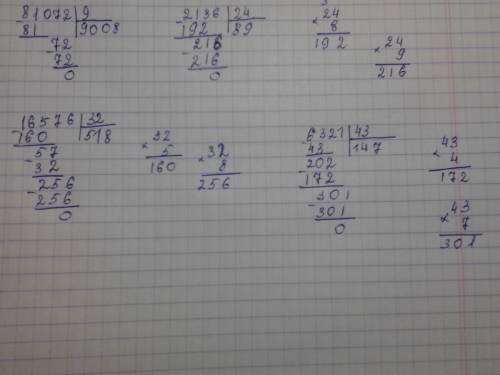 81072 | 9
81 | 9008
- 72
72
0
- 2136 | 24
192 | 89
- 216
216
0
× 24
8
192
× 24
9
216
- 16576 | 32
160 | 518
- 57
32
- 256
256
0
× 32
5
160
× 32
8
256
- 6321 | 43
43 | 147
- 202
172
- 301
301
0
× 43
4
172
× 43
7
301